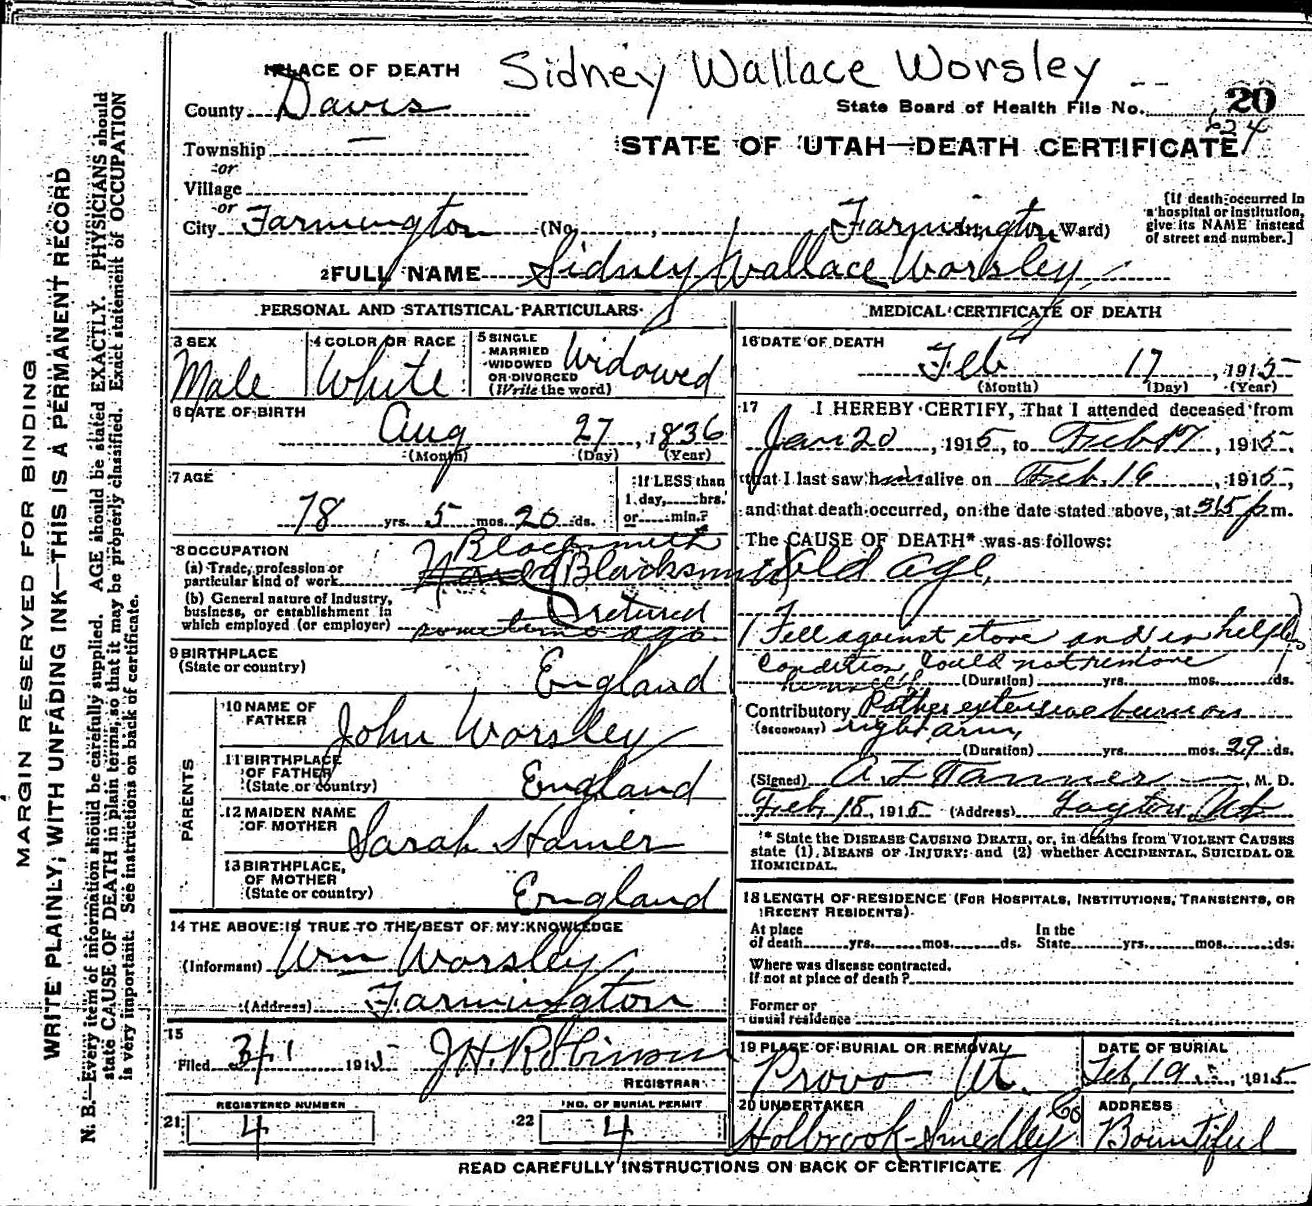 Sidney Wallace Worsley
1 PLACE OF DEATH
County Davis
State Board of Health File No. 20
624
STATE OF UTAH—DEATH CERTIFICATE
Township —
or
Village
or
City Farmington (No. , Farmington Ward)
[If death occurred in a hospital or institution, give its NAME instead of street and number.]
2 FULL NAME Sidney Wallace Worsley
PERSONAL AND STATISTICAL PARTICULARS
3 SEX
Male
4 COLOR OR RACE
White
5 SINGLE
MARRIED
WIDOWED
OR DIVORCED
(Write the word)
Widowed
6 DATE OF BIRTH
Aug 27, 1836
(Month) (Day) (Year)
7 AGE
78 yrs. 5 mos. 20 ds.
If LESS than
1 day, hrs.
or min.?
8 OCCUPATION
(a) Trade, profession or
particular kind of work
Blacksmith
Blacksmith
(b) General nature of Industry,
business, or establishment in
which employed (or employer)
retired
sometime ago.
9 BIRTHPLACE
(State or country)
England
PARENTS
10 NAME OF
FATHER
John Worsley
11 BIRTHPLACE
OF FATHER
(State or country)
England
12 MAIDEN NAME
OF MOTHER
Sarah Hamer
13 BIRTHPLACE,
OF MOTHER
(State or country)
England
14 THE ABOVE IS TRUE TO THE BEST OF MY KNOWLEDGE
(Informant) Wm Worsley
(Address) Farmington
15
Filed 3/1 1915 J.H. Robinson
REGISTRAR
REGISTERED NUMBER
21 4
NO. OF BURIAL PERMIT
22 4
MEDICAL CERTIFICATE OF DEATH
16 DATE OF DEATH
Feb 17, 1915
(Month) (Day) (Year)
17 I HEREBY CERTIFY, That I attended deceased from
Jan 20, 1915, to Feb 17, 1915,
that I last saw him alive on Feb. 16, 1915,
and that death occurred, on the date stated above, at 515 p m.
The CAUSE OF DEATH* was as follows:
Old Age,
Fell against stove and in helpless
condition, could not remove
himself
(Duration) yrs. mos. ds.
Contributory Rather extensive burn on
(SECONDARY) right arm,
(Duration) yrs. mos. 29 ds.
(Signed) A Z Tanner M. D.
Feb, 18, 1915 (Address) Layton, Ut
* State the DISEASE CAUSING DEATH, or, in deaths from VIOLENT CAUSES
state (1), MEANS OF INJURY; and (2) whether ACCIDENTAL, SUICIDAL OR
HOMICIDAL.
18 LENGTH OF RESIDENCE (FOR HOSPITALS, INSTITUTIONS, TRANSIENTS, OR
RECENT RESIDENTS).
At place
of death yrs. mos. ds.
In the
State yrs. mos. ds.
Where was disease contracted,
If not at place of death?
Former or
usual residence
19 PLACE OF BURIAL OR REMOVAL
Provo Ut.
DATE OF BURIAL
Feb 19, 1915
20 UNDERTAKER
Holbrook-Smedley Co
ADDRESS
Bountiful
READ CAREFULLY INSTRUCTIONS ON BACK OF CERTIFICATE
MARGIN RESERVED FOR BINDING
WRITE PLAINLY; WITH UNFADING INK—THIS IS A PERMANENT RECORD
N. B.—Every item of information should be carefully supplied. AGE should be stated EXACTLY. PHYSICIANS should
state CAUSE OF DEATH in plain terms, so that it may be properly classified. Exact statement of OCCUPATION
is very important. See instructions on back of certificate.